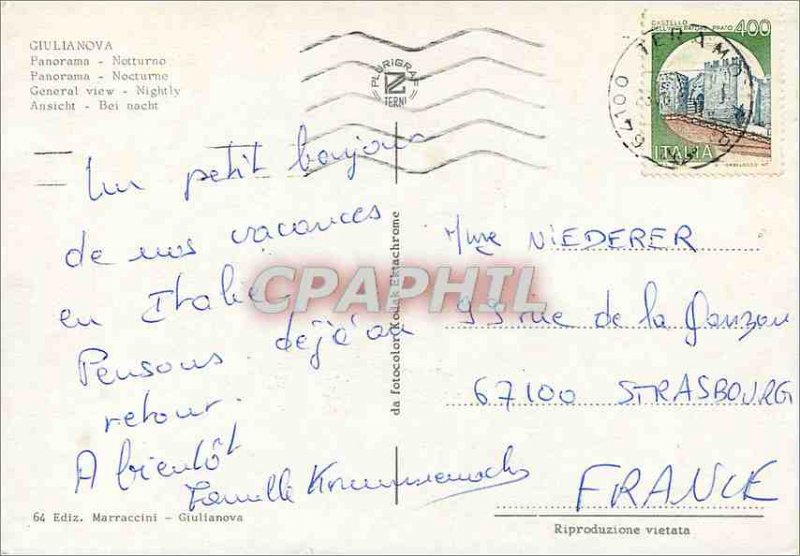 GIULIANOVA
Panorama - Notturno
Panorama - Nocturne
General view - Nightly
Ansicht - Bei nacht
PLURIGRAF
TERNI
CASTELLO
DELL'IMPERATORE PRATO 400
ITALIA
64100 TERAMO
Un petit bonjour
de nos vacances
en Italie.
Pensons déjà au
retour.
A bientôt
Famille
da fotocolor Kodak Ektachrome
Mme NIEDERER
rue de la
67100 STRASBOURG
FRANCE
CPAPHIL
64 Ediz. Marraccini - Giulianova
Riproduzione vietata